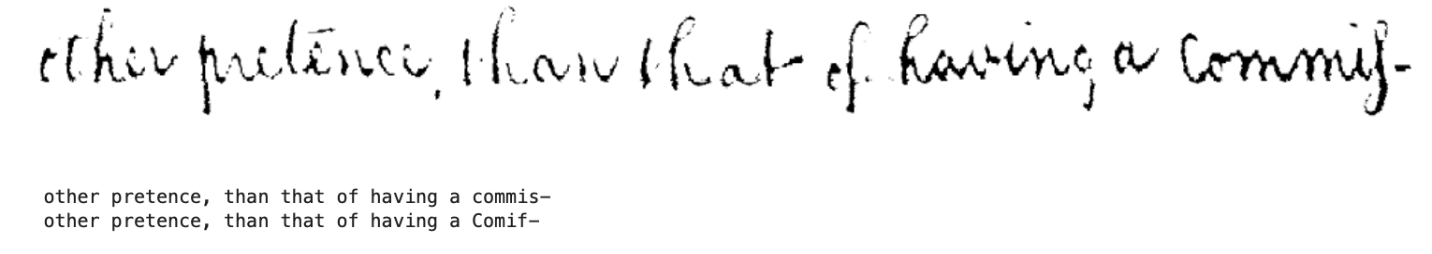 other pretence, than that of having a Commis-
other pretence, than that of having a commis-
other pretence, than that of having a Comif-